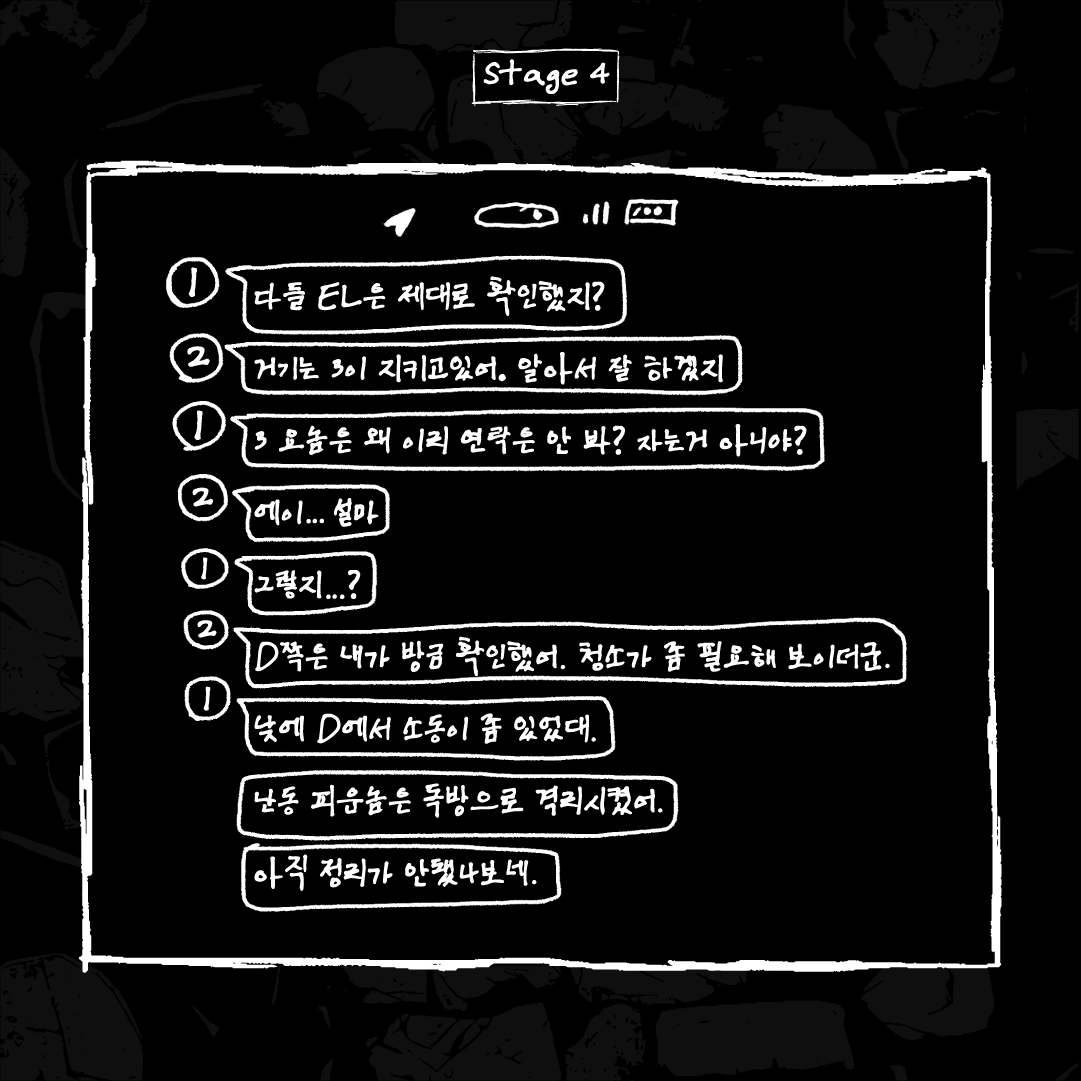 Stage 4
100
1 다들 EL은 제대로 확인했지?
2 거기는 3이 지키고있어. 알아서 잘 하겠지
1 3 요놈은 왜 이리 연락은 안 봐? 자는거 아니야?
2 에이... 설마
1 그렇지...?
2 D쪽은 내가 방금 확인했어. 청소가 좀 필요해 보이더군.
1 낮에 D에서 소동이 좀 있었대.
난동 피운놈은 독방으로 격리시켰어.
아직 정리가 안됐나보네.